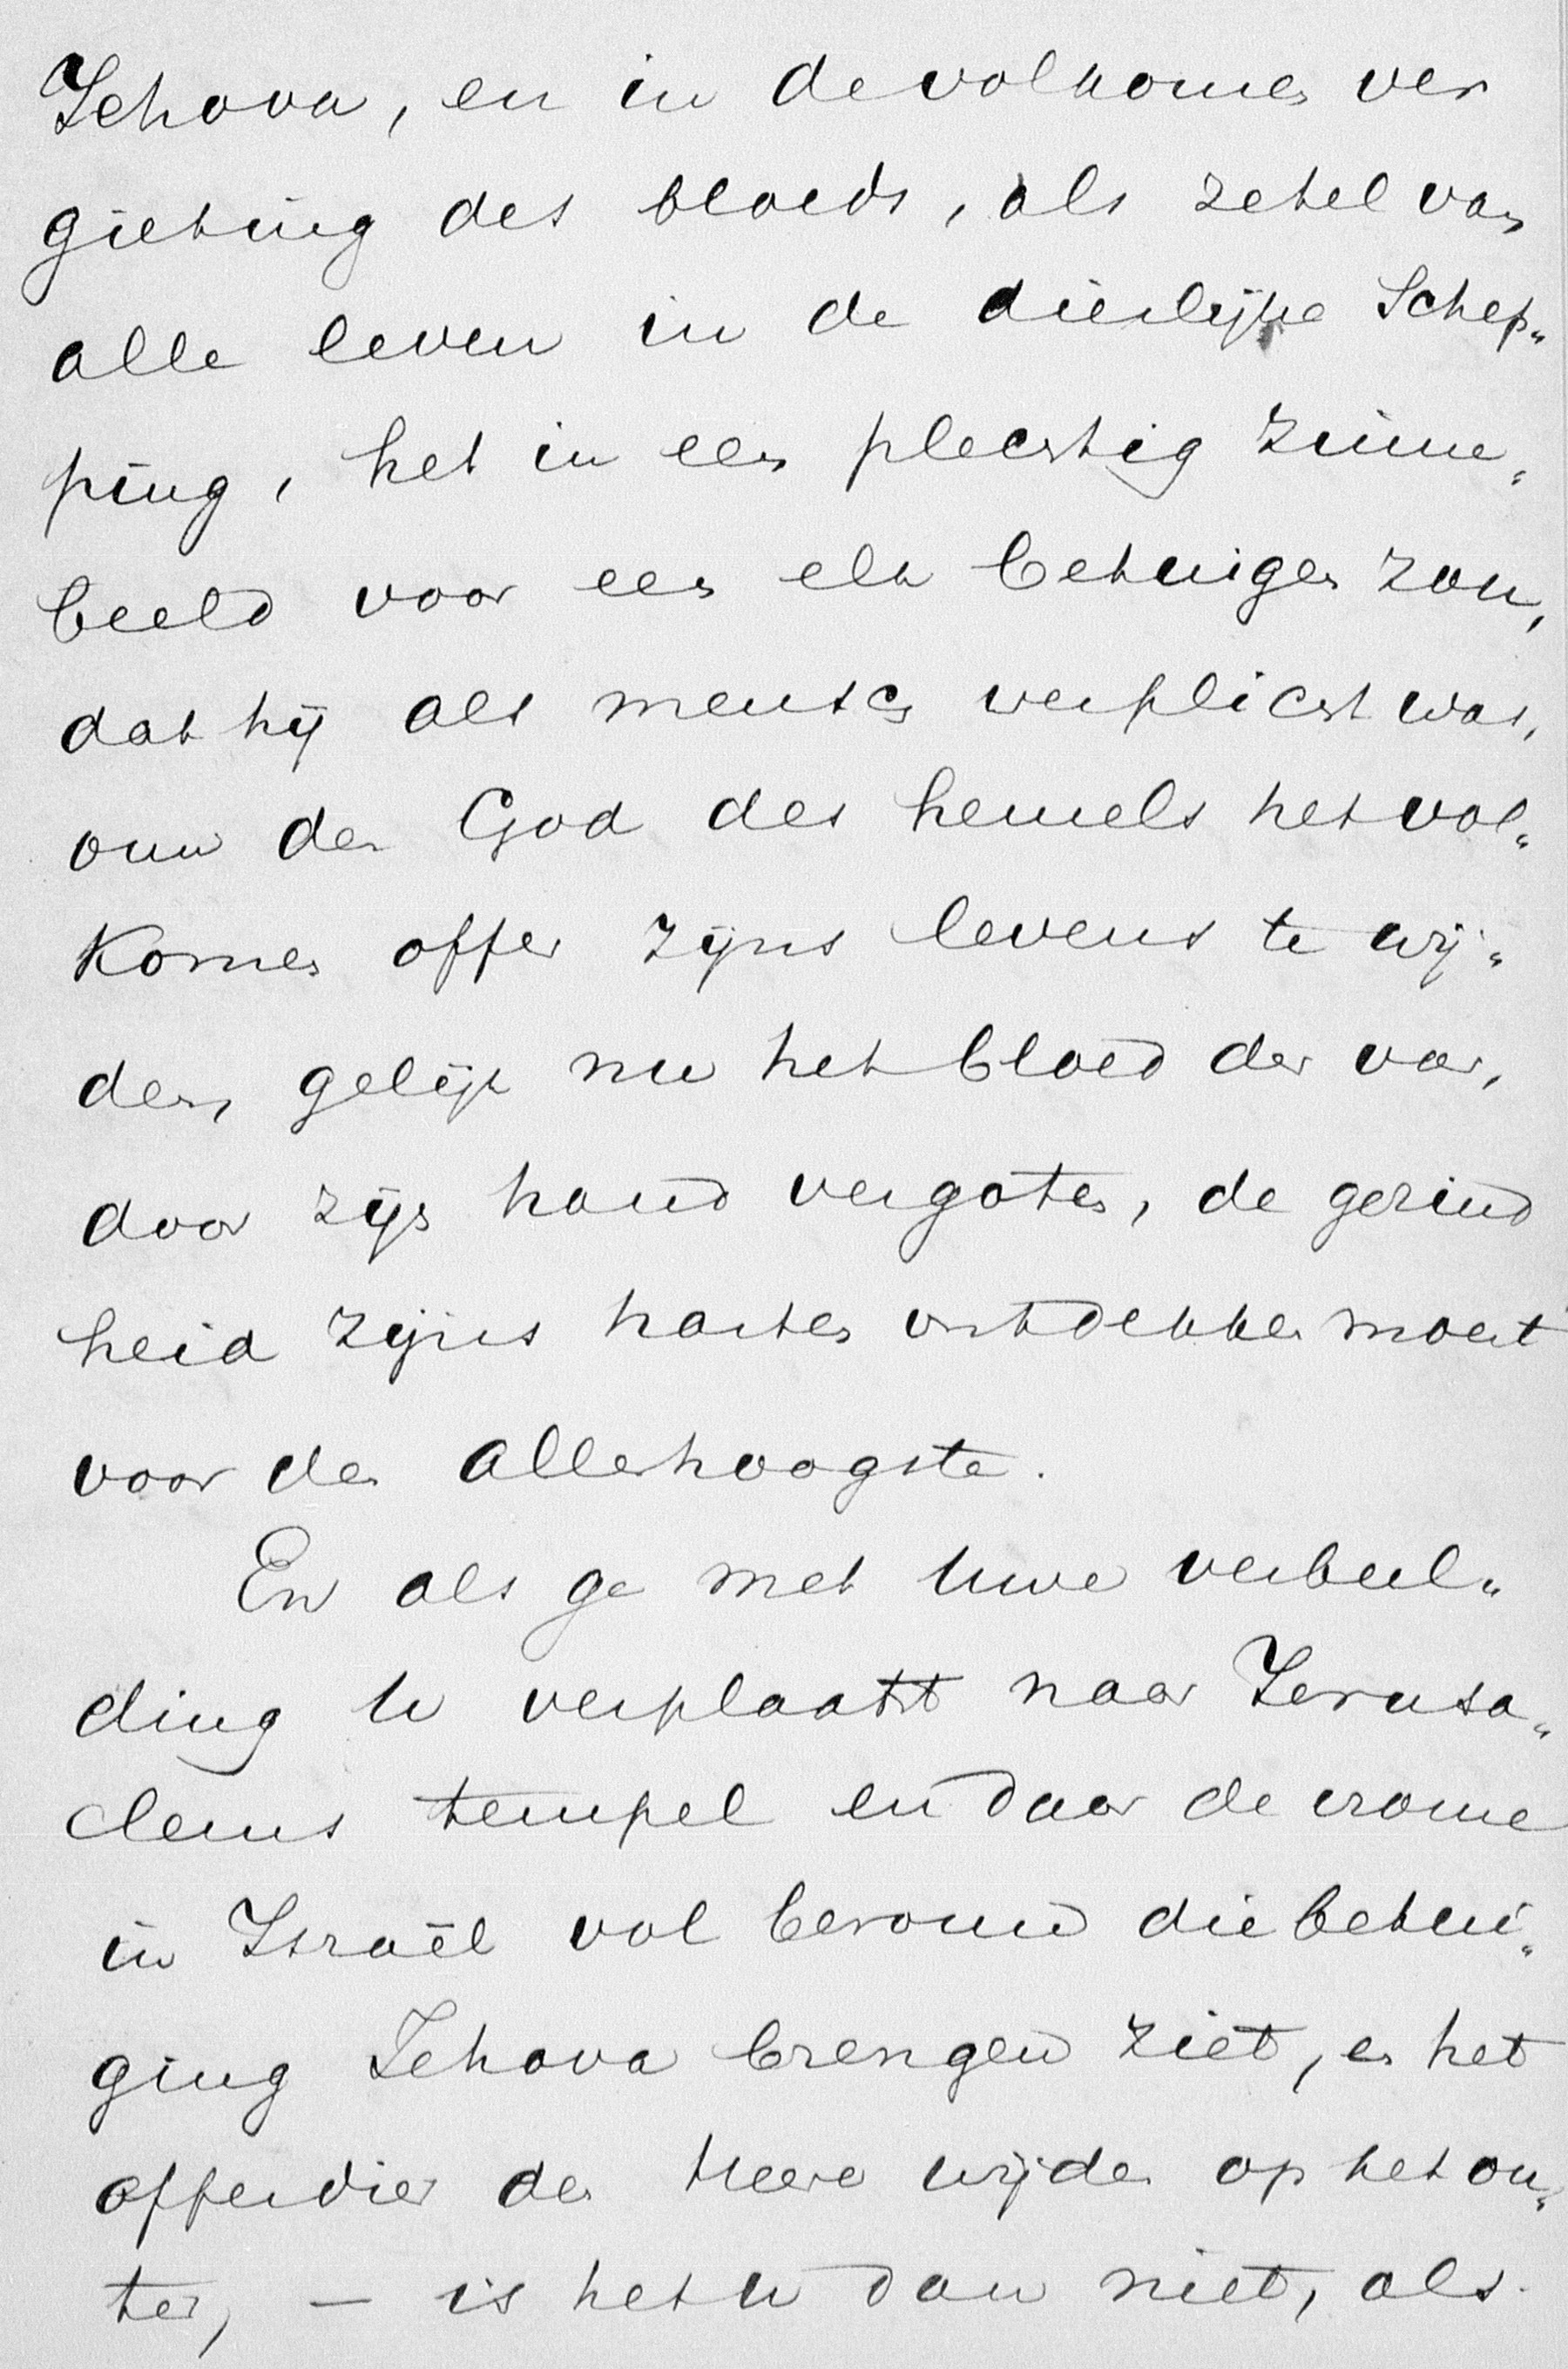 Jehova, en in de volkomen ver
gieting des bloeds, als zetel van
alle leven in de dierlijke Schep„
ping, het in een plechtig zinne„
beeld voor een elk betuigen zou,
dat hij als mensch verplicht was,
om den God des hemels het vol„
komen offer zijns levens te wij„
den, gelijk nu het bloed der var,
door zijn hand vergoten, de gezind
heid zijns harten ontdekken moest
voor den Allerhoogste.
En als ge met Uwe verbeel„
ding U verplaatst naar Jerusa„
lems tempel en daar de vrome
in Israël vol berouw die betui„
ging Jehova brengen ziet, en het
offerdier den Heere wijden op het ou„
ter, — is het U dan niet, als